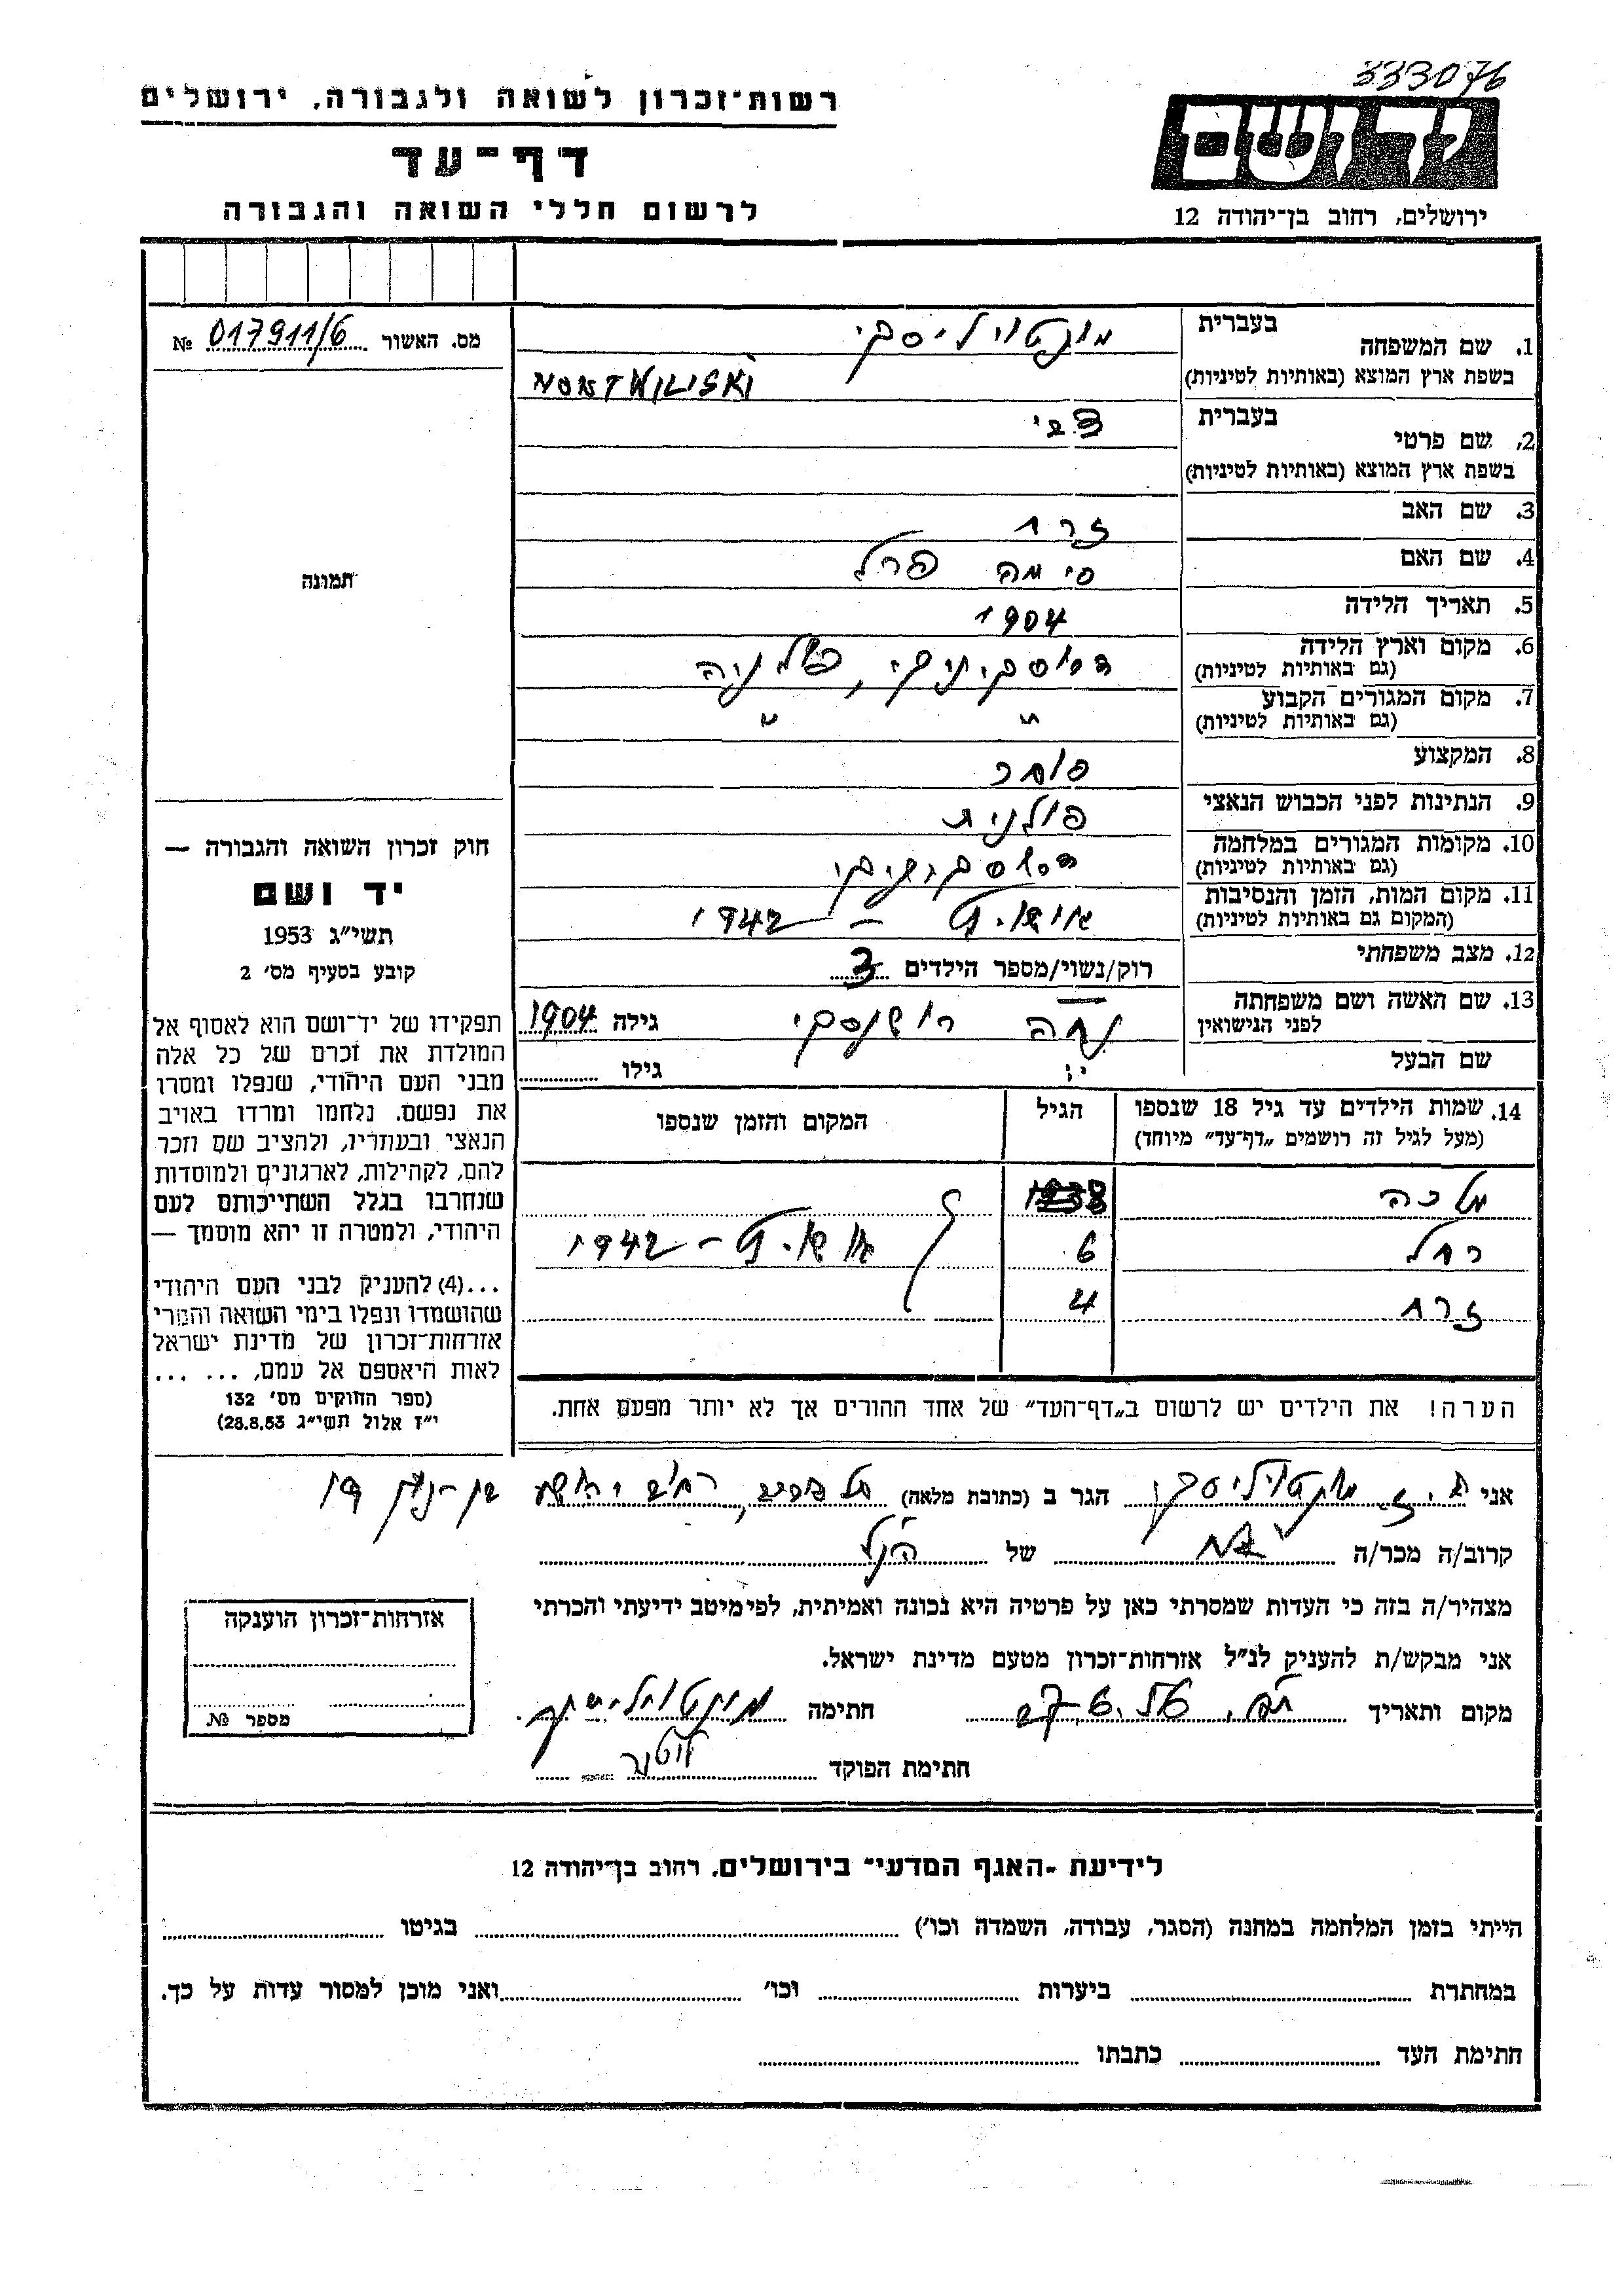 333076
רשות־זכרון לשואה ולגבורה, ירושלים
ידושם
דף־עד
לרשום חללי השואה והגבורה
ירושלים, רחוב בן־יהודה 12
מס. האשור 017911/6 №
תמונה
1. שם המשפחה בעברית מונטויליסקי
בשפת ארץ המוצא (באותיות לטיניות) MONTWILISKI
2. שם פרטי בעברית צבי
בשפת ארץ המוצא (באותיות לטיניות)
3. שם האב זרח
4. שם האם סימה פרל
5. תאריך הלידה 1904
6. מקום וארץ הלידה פולניה
(גם באותיות לטיניות)
7. מקום המגורים הקבוע " "
(גם באותיות לטיניות)
8. המקצוע סוחר
9. הנתינות לפני הכבוש הנאצי פולנית
10. מקומות המגורים במלחמה
(גם באותיות לטיניות)
11. מקום המות, הזמן והנסיבות 1942 –
(המקום גם באותיות לטיניות)
12. מצב משפחתי רוק/נשוי/מספר הילדים 3
13. שם האשה ושם משפחתה
לפני הנישואין גילה 1904
שם הבעל גילו
14. שמות הילדים עד גיל 18 שנספו הגיל המקום והזמן שנספו
(מעל לגיל זה רושמים „דף־עד” מיוחד)
מלכה
רחל 6 1942 –
זרח 4
הערה! את הילדים יש לרשום ב„דף־העד” של אחד ההורים אך לא יותר מפעם אחת.
חוק זכרון השואה והגבורה —
יד ושם
תשי״ג 1953
קובע בסעיף מס׳ 2
תפקידו של יד־ושם הוא לאסוף אל
המולדת את זכרם של כל אלה
מבני העם היהודי, שנפלו ומסרו
את נפשם. נלחמו ומרדו באויב
הנאצי ובעוזריו, ולהציב שם וזכר
להם, לקהילות, לארגונים ולמוסדות
שנחרבו בגלל השתייכותם לעם
היהודי, ולמטרה זו יהא מוסמך —
...(4) להעניק לבני העם היהודי
שהושמדו ונפלו בימי השואה והמרי
אזרחות־זכרון של מדינת ישראל
לאות היאספם אל עמם, ... ...
(ספר החוקים מס׳ 132
י״ז אלול תשי״ג 28.8.53)
אני מונטויליסקי הגר ב (כתובת מלאה) רחוב יהושע בן־נון 19
קרוב/ה מכר/ה אח של הנ״ל
מצהיר/ה בזה כי העדות שמסרתי כאן על פרטיה היא נכונה ואמיתית, לפי מיטב ידיעתי והכרתי
אני מבקש/ת להעניק לנ״ל אזרחות־זכרון מטעם מדינת ישראל.
מקום ותאריך 27.6.56 חתימה מונטויליסקי
חתימת הפוקד
אזרחות־זכרון הוענקה
מספר №
לידיעת „האגף המדעי” בירושלים, רחוב בן־יהודה 12
הייתי בזמן המלחמה במחנה (הסגר, עבודה, השמדה וכו׳) בגיטו
במחתרת ביערות וכו׳ ואני מוכן למסור עדות על כך.
חתימת העד כתבתו